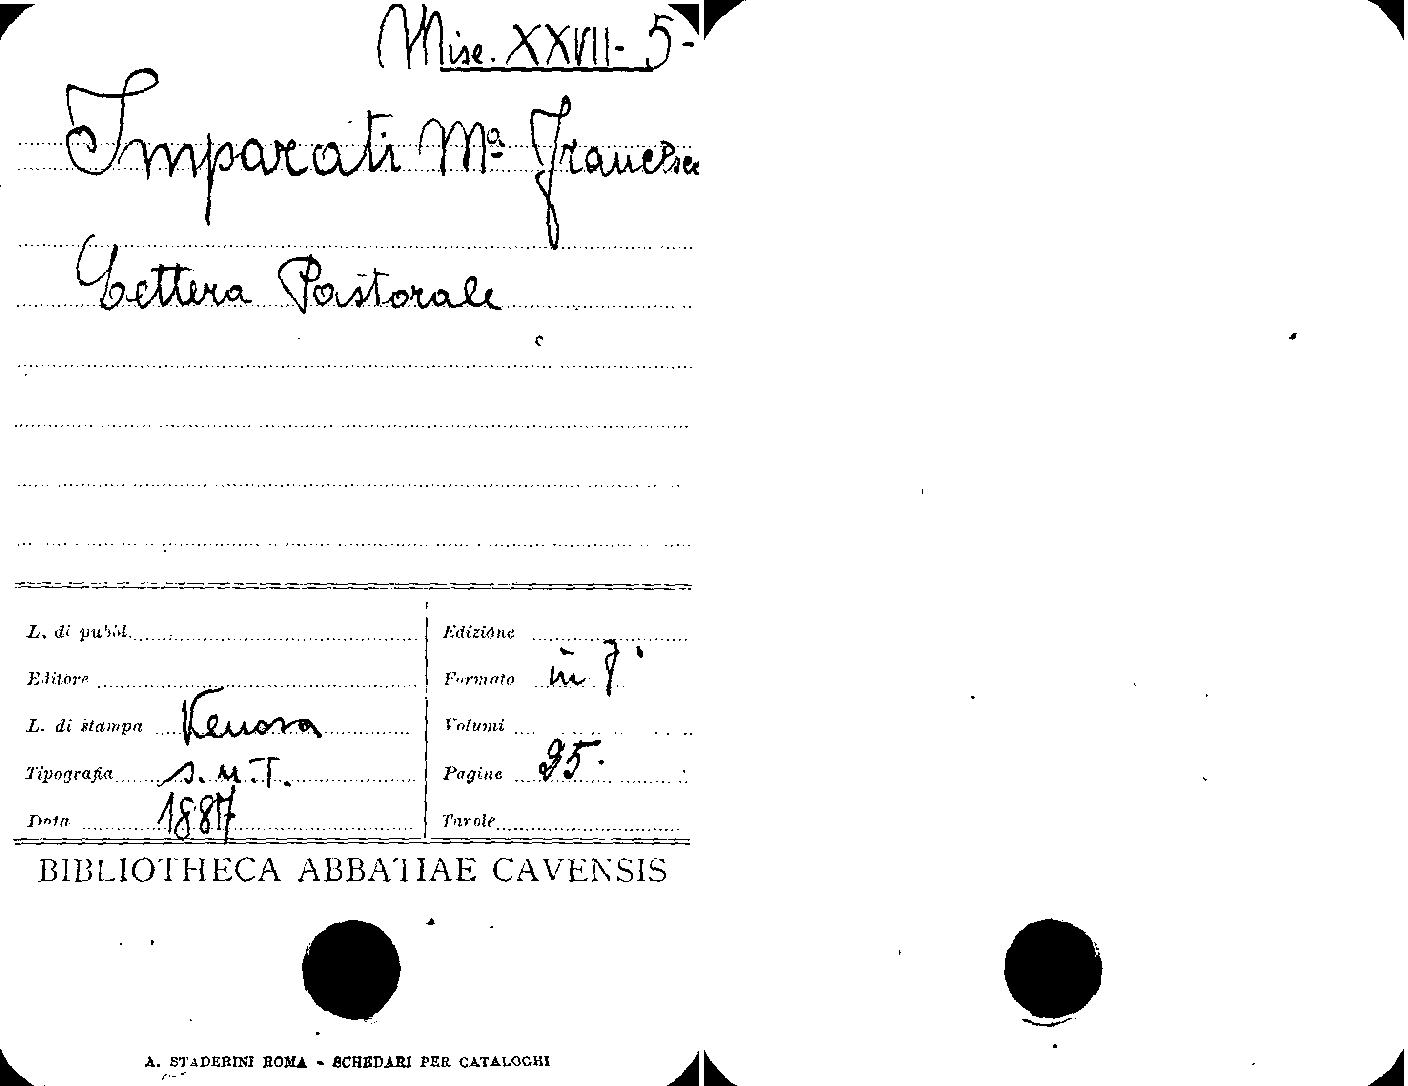 Misc. XXVII-5-
Imparati Mª Francesco
Lettera Pastorale
L. di pubbl.
Edizione
Editore
Formato in f°
L. di stampa Venosa
Volumi
Tipografia s.n.T.
Pagine 25.
Data 1887
Tavole
BIBLIOTHECA ABBATIAE CAVENSIS
A. STADERINI ROMA - SCHEDARI PER CATALOGHI